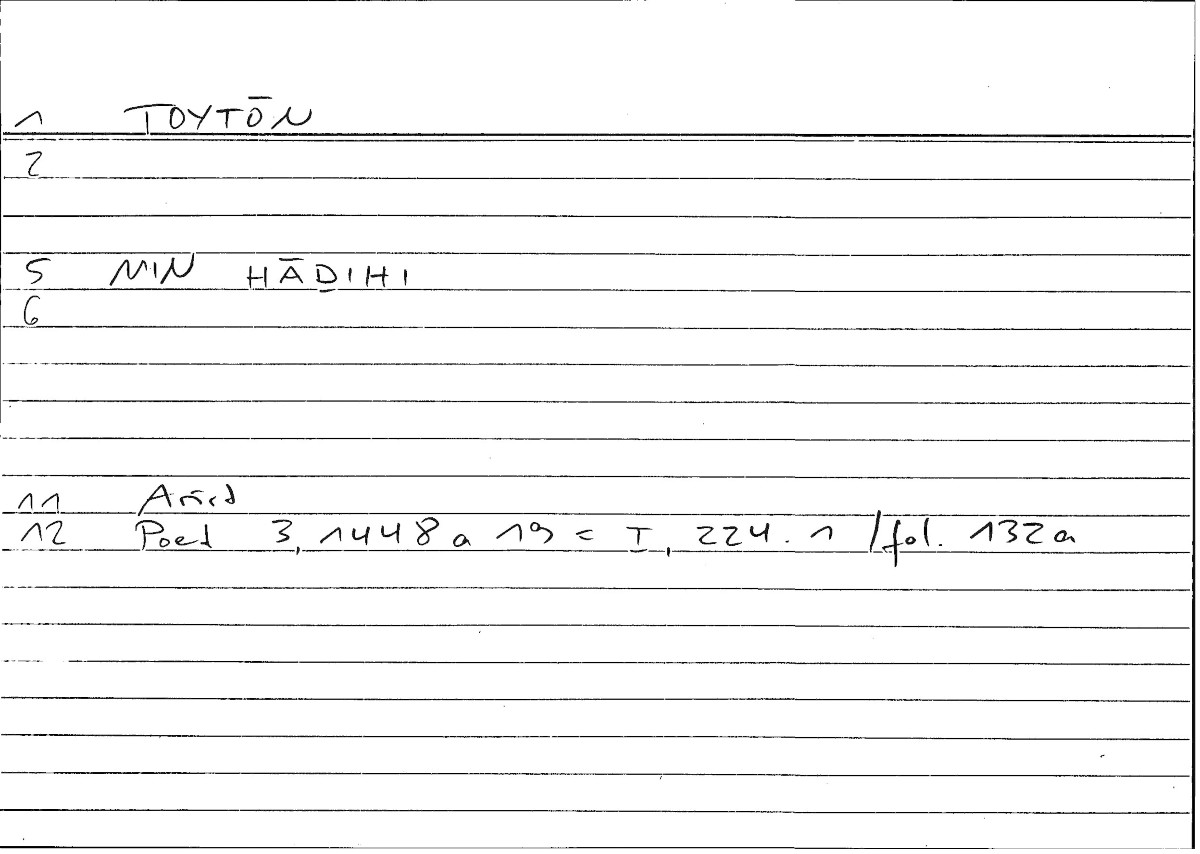 1 TOYTŌN
2
5 MIN HĀḎIHI
6
11 Arist
12 Poet 3, 1448 a 19 = I, 224.1 / fol. 132a